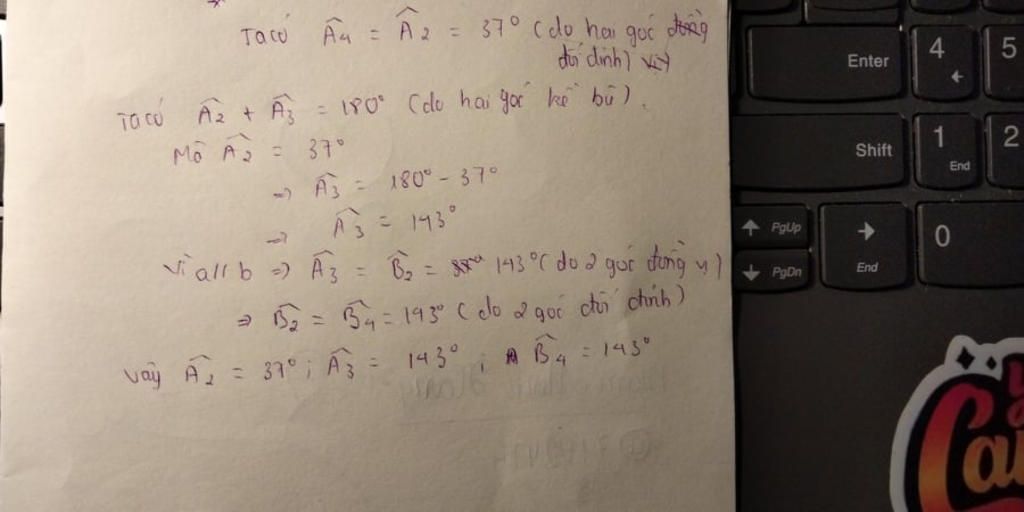 Ta có Â4 = Â2 = 37° (do hai góc
đối đỉnh)
Ta có Â2 + Â3 = 180° (do hai góc kề bù).
Mà Â2 = 37°
=> Â3 = 180° - 37°
=> Â3 = 143°
Vì a // b => Â3 = B̂2 = 143° (do 2 góc đồng vị)
=> B̂2 = B̂4 = 143° (do 2 góc đối đỉnh)
Vậy Â2 = 37° ; Â3 = 143° ; B̂4 = 143°
Enter
4
5
Shift
1
End
2
PgUp
End
0
PgDn